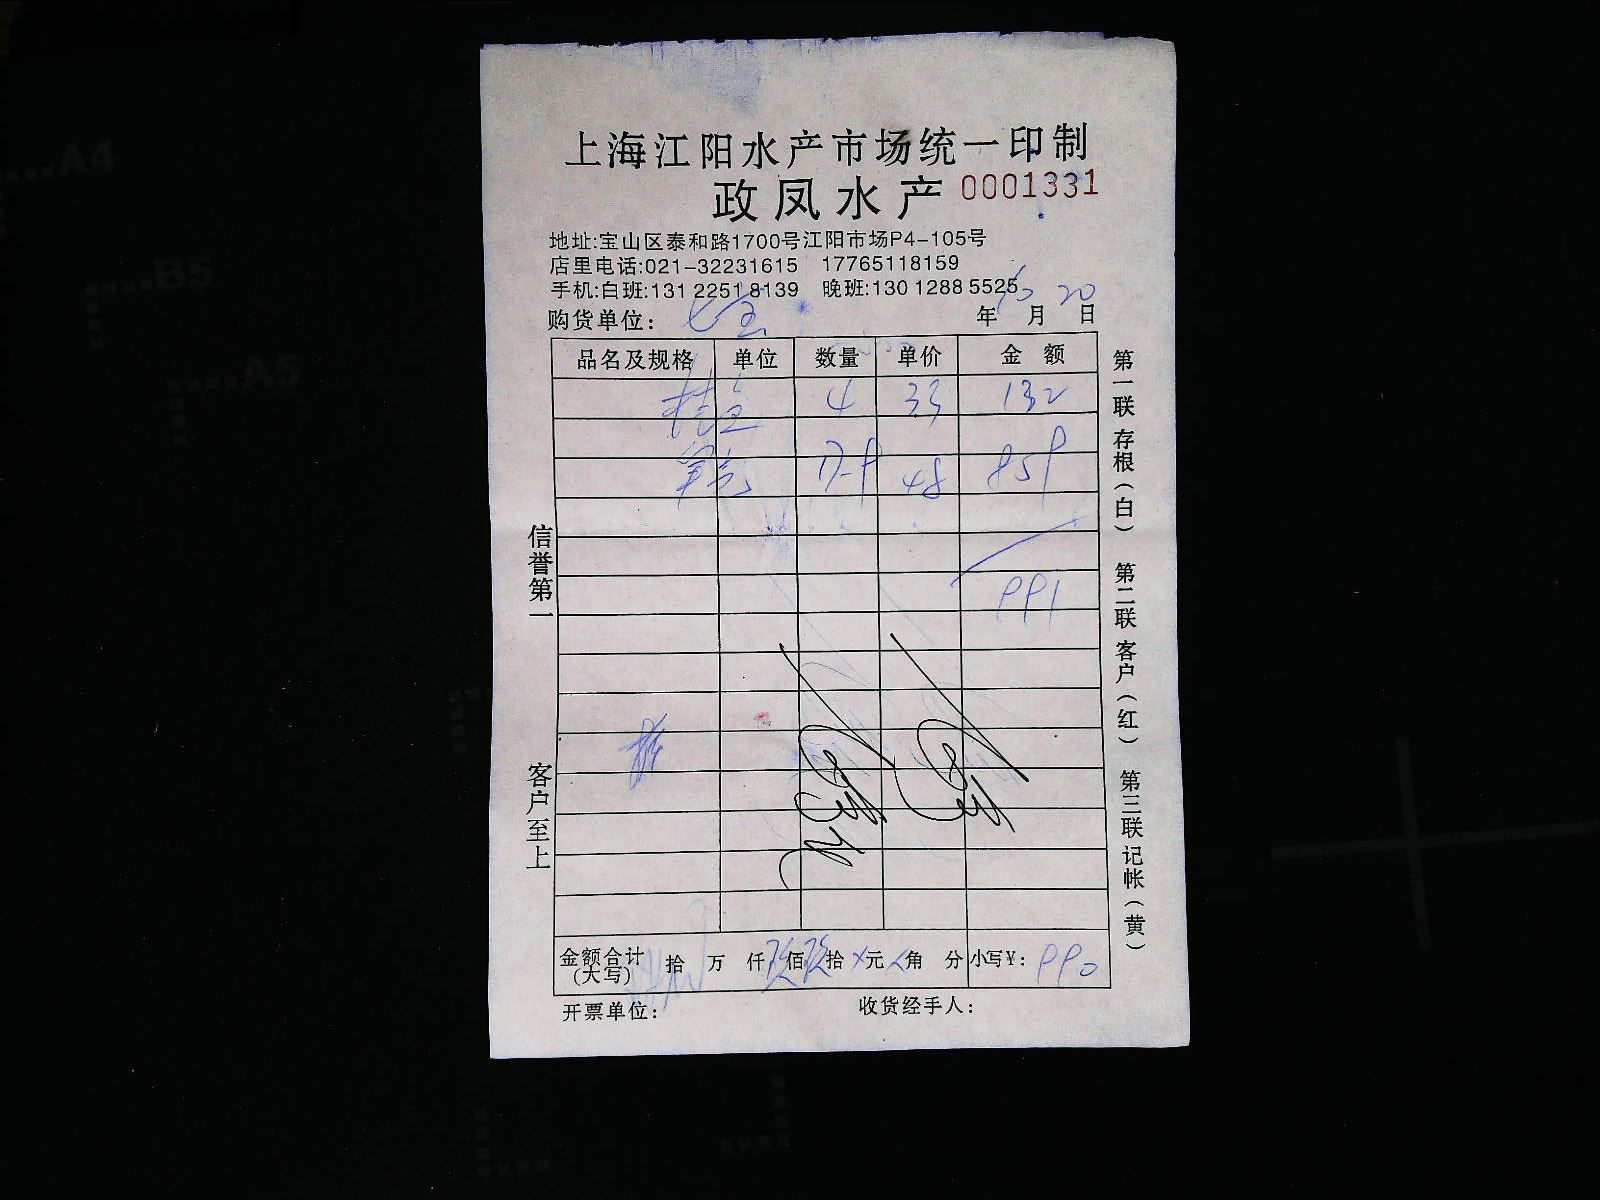 上海江阳水产市场统一印制
政凤水产 0001331
地址:宝山区泰和路1700号江阳市场P4-105号
店里电话:021-32231615 17765118159
手机:白班:131 2251 8139 晚班:130 1288 5525
购货单位: 七宝 年 10 月 20 日
品名及规格 单位 数量 单价 金 额
桂鱼 4 33 132
17.9 48 859
991
信誉第一
客户至上
金额合计(大写) 拾 万 仟 玖 佰 玖 拾 元 角 分 小写¥: 990
开票单位: 收货经手人:
第一联 存根(白) 第二联 客户(红) 第三联 记帐(黄)
A4
B5
A5